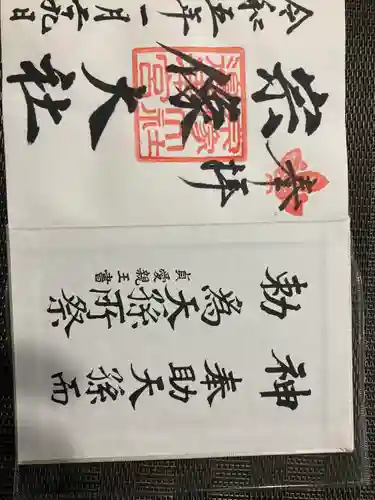 奉拝
宗像大社
令和五年一月
九日
神勅
奉助天孫而
為天孫所祭
貞愛親王書